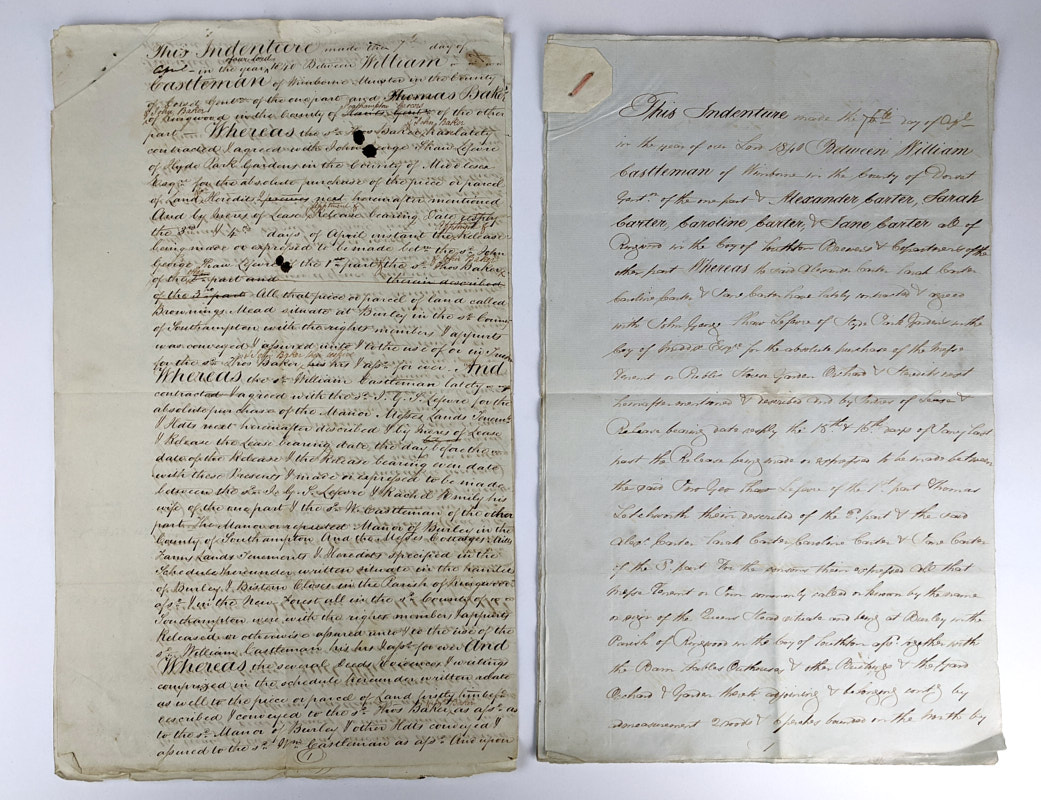 This Indenture made the 7th day of
April in the year of our Lord 1840 Between William
Castleman of Wimborne Minster in the County
of Dorset Gentn of the one part and Thomas Baker
& John Baker
of Ringwood in the County of Southampton of the other
part Whereas the sd Thos Baker & John Baker have lately
contracted & agreed with John George Shaw Lefevre
of Hyde Park Gardens in the County of Middlesex
Esqre for the absolute purchase of the piece or parcel
of Land & Heredits next hereinafter mentioned
And by Indres of Lease & Release bearing date
the 3rd & 4th days of April instant the Release
being made or expressed to be made betwn the sd John
George Shaw Lefevre of the 1st part & the sd Thos Baker & John Baker
of the part and therein described
of the 3rd part All that piece or parcel of land called
Brownings Mead situate at Burley in the sd County
of Southampton with the rights members & appurts
was conveyed & assured unto & to the use of or in Trust
for the sd Thos Baker & John Baker his hrs & asss for ever And
Whereas the sd William Castleman lately
contracted & agreed with the sd J. G. S. Lefevre for the
absolute purchase of the Manor Messes Lands Tenemts
& Hdts next hereinafter described & by Indres of Lease
& Release the Lease bearing date the day before the
date of the Release & the Release bearing even date
with these Presents & made or expressed to be made
between the sd J. G. S. Lefevre & Rachel Emily his
wife of the one part & the sd W. Castleman of the other
part The Manor or reputed Manor of Burley in the
County of Southampton And the Messes Cottages Mills
Farms Lands Tenements & Heredits specified in the
Schedule hereunder written situate in the
of Burley & Bistern Closes in the Parish of Ringwood
afsd & in the New Forest all in the sd County of
Southampton were with the rights members & appurts
Released or otherwise assured unto & to the use of the
sd William Castleman his hrs & asss for ever And
Whereas the several Deeds Evidences & writings
comprized in the schedule hereunder written relate
as well to the piece or parcel of Land firstly hinbefe
described & conveyed to the sd Thos Baker & John Baker as afsd as
to the sd Manor of Burley & other Hdts conveyed &
assured to the sd Wm Castleman as afsd And upon
1
This Indenture made the 7th day of April
in the year of our Lord 1840 Between William
Castleman of Wimborne in the County of Dorset
Gentn of the one part & Alexander Carter, Sarah
Carter, Caroline Carter, & Jane Carter all of
Ringwood in the Coy of Southton Brewers & Copartners of the
other part Whereas the said Alexander Carter Sarah Carter
Caroline Carter & Jane Carter have lately contracted & agreed
with John George Shaw Lefevre of Hyde Park Gardens in the
Coy of Middx Esqre for the absolute purchase of the Messe
Tenent or Public House Garden Orchard & Heredits next
hereinafter mentioned & described And by Indres of Lease &
Release bearing date resply the 15th & 16th days of Jany last
past the Release being made or expressed to be made between
the said Jno Geo Shaw Lefevre of the 1st part Thomas
therein described of the 2d part & the said
Alexr Carter Sarah Carter Caroline Carter & Jane Carter
of the 3d part For the considns therein expressed All that
Messe Tenent or Inn commonly called or known by the name
or sign of the Queens Head situate and being at Burley in the
Parish of Ringwood in the Coy of Southton afsd together with
the Barn Stables Outhouses & other Buildings & the Yard
Orchard & Garden thereto adjoining & belonging contg by
admeasurement 2 roods & perches bounded on the North by
1